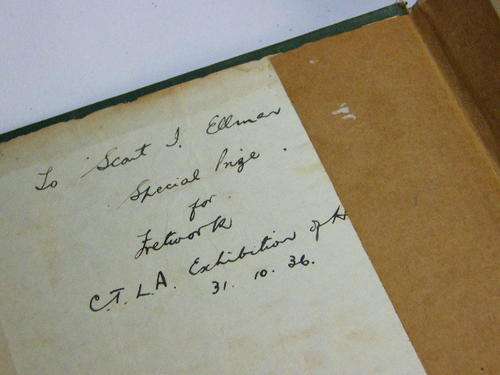 To Scout I. Ellman
Special Prize.
for
Fretwork
C.T.L.A. Exhibition of
31. 10. 36.